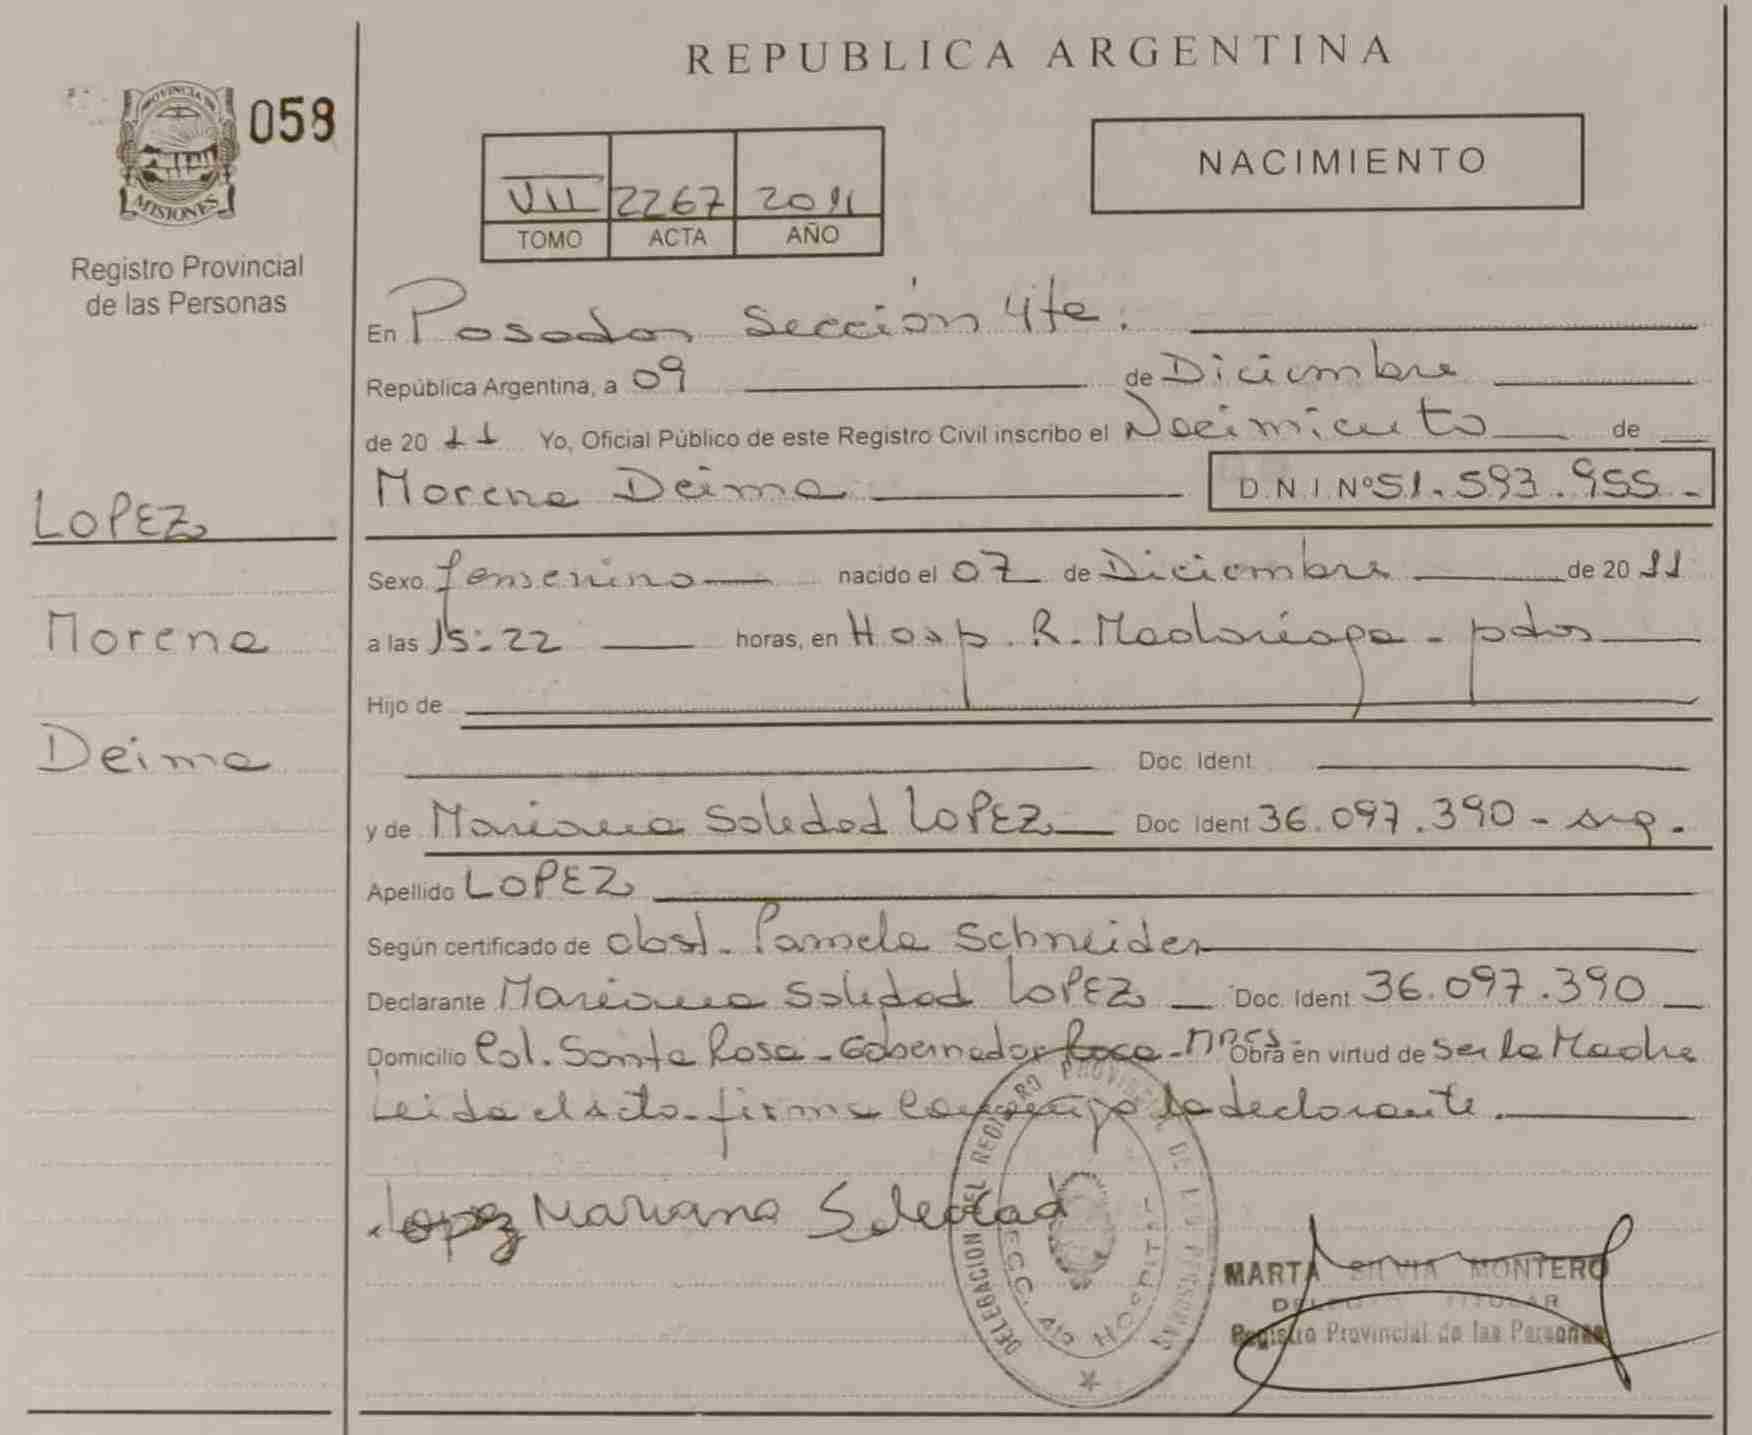 REPUBLICA ARGENTINA
PROVINCIA DE
MISIONES
058
Registro Provincial
de las Personas
VII 2267 2011
TOMO ACTA AÑO
NACIMIENTO
En Posadas Sección 4ta.
República Argentina, a 09 de Diciembre
de 20 11 Yo, Oficial Público de este Registro Civil inscribo el Nacimiento de
Morena Deima D.N.I Nº 51.593.955-
LOPEZ
Morena
Deima
Sexo femenino nacido el 07 de Diciembre de 20 11
a las 15:22 horas, en Hosp. R. Madariaga - pdas
Hijo de
Doc. Ident
y de Mariana Soledad LOPEZ Doc Ident 36.097.390 - arg.
Apellido LOPEZ
Según certificado de obst. Pamela Schneider
Declarante Mariana Soledad LOPEZ Doc. Ident 36.097.390
Domicilio Col. Santa Rosa - Gobernador Roca - Mnes Obra en virtud de ser la Madre
Leida el acta firma conmigo la declarante.
Lopez Mariana Soledad
DELEGACION DEL REGISTRO PROVINCIAL DE LAS PERSONAS
SECC. 4ta HOSPITAL
MARTA SILVIA MONTERO
TITULAR
Registro Provincial de las Personas